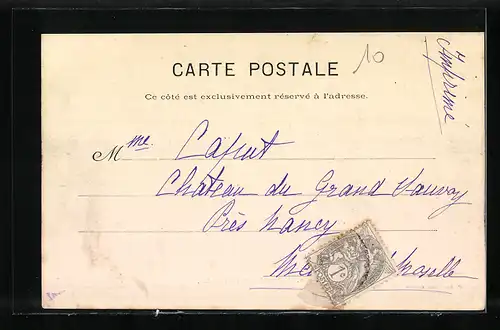 10
Imprimé
CARTE POSTALE
Ce côté est exclusivement réservé à l'adresse.
Mme
Château du Grand Sauvoy
Près Nancy
Moselle